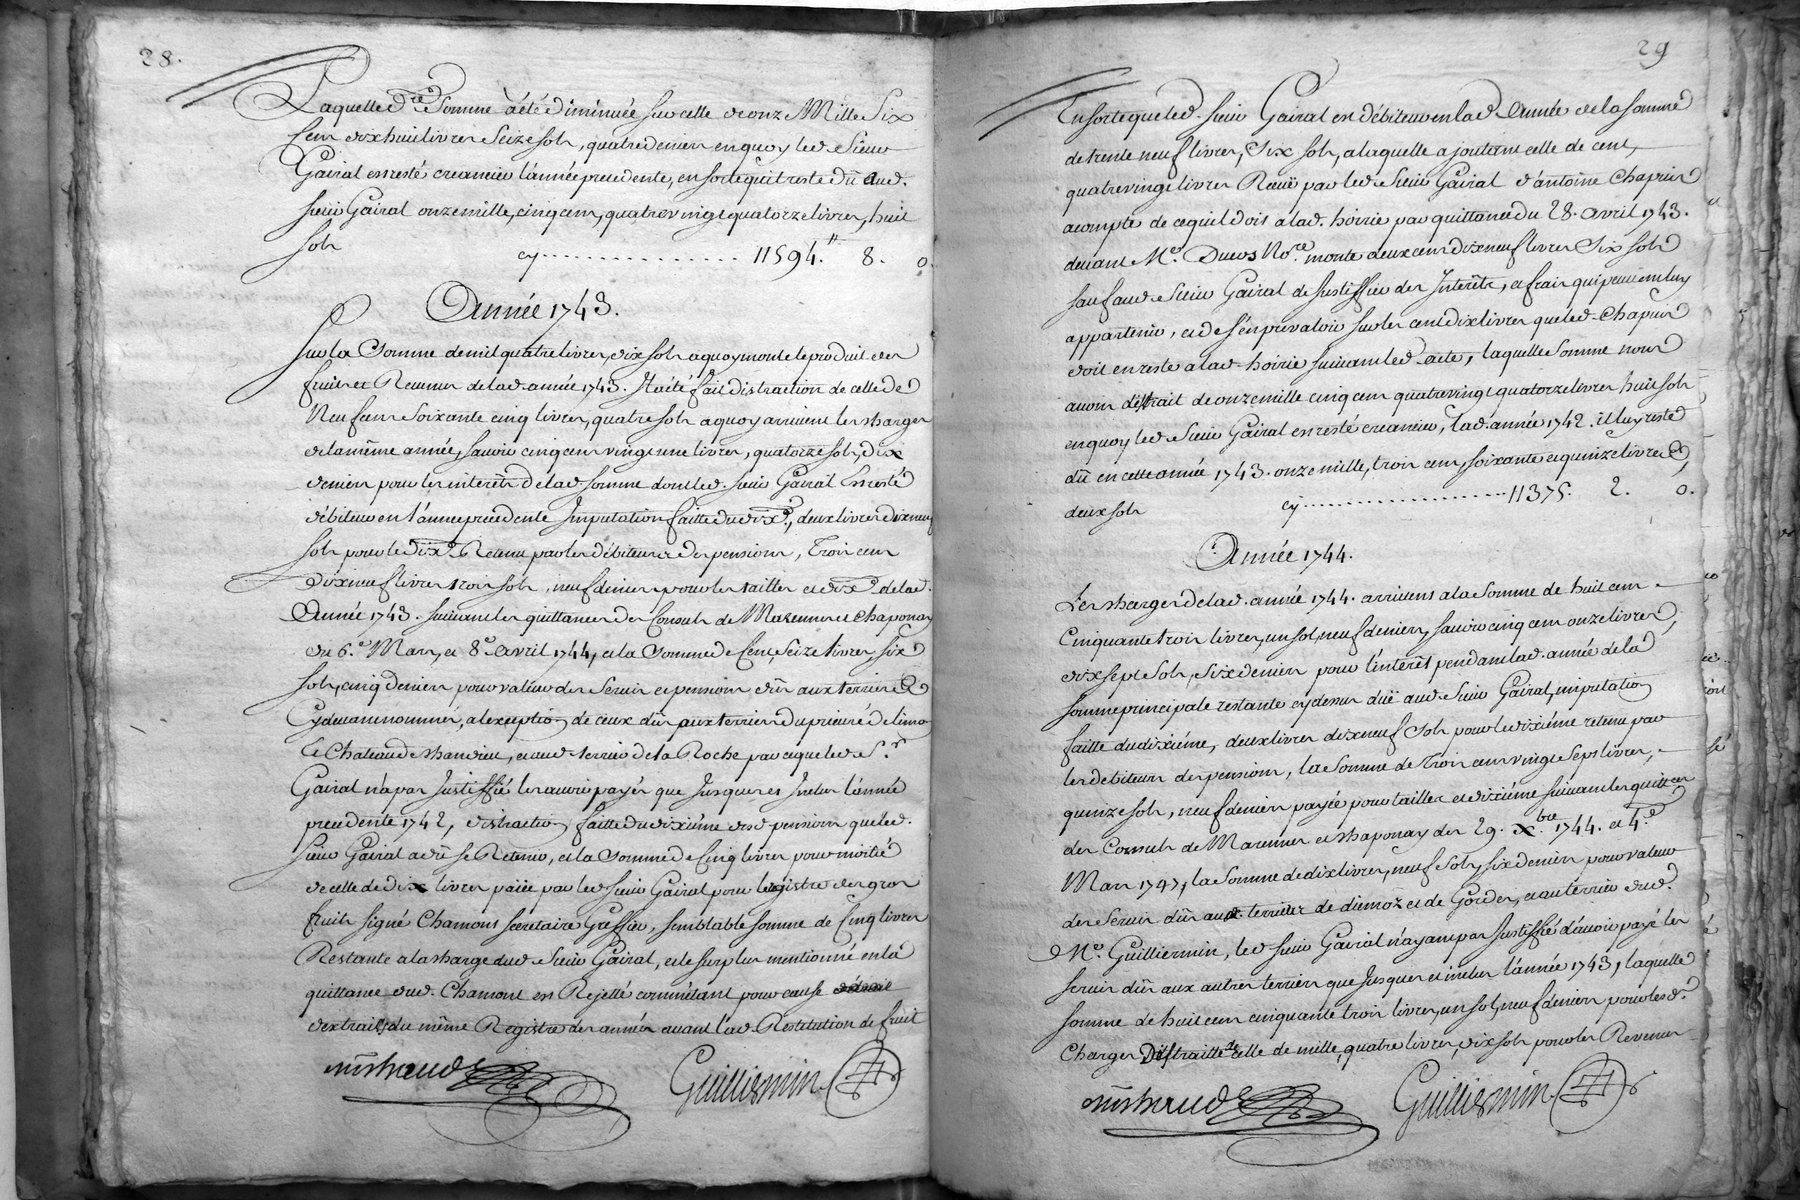 28.
Laquelle dre Somme a été diminuée sur celle de onze Mille Six
Cens dix huit livres Seize sols, quatre deniers en quoy led. Sieur
Gairal est resté creancier l'année precedente, en sorte qu'il reste dû aud.
sieur Gairal onze mille, cinq cens, quatre vingt quatorze livres, huit
sols cy ................ 11594.ll 8. 0.
Année 1743.
Sur la Somme de mil quatre livres, dix sols a quoy monte le produit des
fruits et Revenus de lad. année 1743. Il a été fait distraction de celle de
Neuf cens Soixante cinq livres, quatre sols a quoy arrivent les charges
de la même année, savoir cinq cens vingt une livres, quatorze sols, dix
deniers pour les interêts de lad. somme dont led. sieur Gairal Est resté
débiteur en l'année precedente Imputation faitte du dixe., deux livres dix neuf
sols pour le dixe. Retenu par les débiteurs des pensions, Trois cens
dix neuf livres trois sols, neuf deniers pour les tailles et dixe. de lad.
Année 1743. suivant les quittances des Consuls de Marennes et Chaponay
du 6.e Mars, et 8.e avril 1744, et la Somme de Cent, Seize livres six
sols, cinq deniers pour valeur des Servis et pensions dûs aux terriers
Cy devant nommés, a l'exception de ceux dûs aux terriers du prieuré de
le Chateau de chandieu, et aud. terrier de la Roche parce que led. Sr.
Gairal n'a pas Justiffié les avoir payés que Jusques et Inclus l'année
precedente 1742, distraction faitte du dixiéme desd. pensions que led.
Sieur Gairal a dû se Retenir, et la Somme de Cinq livres pour moitié
de celle de dix livres païée par led. sieur Gairal pour le registre des gros
fruits signé Chamont secretaire Greffier, semblable somme de Cinq livres
Restante a la charge dud. Sieur Gairal, et le surplus mentionné en la
quittance dud. Chamont est Rejetté comm'étant pour cause
d'extraits du même Registre des années avant lad. Restitution de fruit
Guilliermin
29
En sorte que led. sieur Gairal est débiteur en lad. Année de la somme
de trente neuf livres, Six sols, a laquelle ajoutant celle de cent,
quatre vingt livres Reçuë par led. Sieur Gairal d'antoine Chapuis
acompte de ce qu'il doit a lad. hoirie par quittance du 28. avril 1743.
devant Me. Ducos Nore. monte deux cens dix neuf livres Six sols
sauf aud. Sieur Gairal de Justiffier des Interêts, et frais qui peuvent luy
appartenir, et de s'en prevaloir sur les cent dix livres que led. Chapuis
doit en reste a lad. hoirie suivant led. acte, laquelle Somme nous
avons distrait de onze mille cinq cens quatre vingt quatorze livres huit sols
en quoy led. Sieur Gairal est resté creancier, lad. année 1742. il luy reste
dû en cette année 1743. onze mille, trois cens, soixante et quinze livres
deux sols cy ................ 11375. 2. 0.
Année 1744.
Les charges de lad. année 1744. arrivent a la Somme de huit cens
Cinquante trois livres, un sol, neuf deniers, savoir cinq cens onze livres,
dix sept Sols, Six deniers pour l'interêt pendant lad. année de la
somme principale restante cy dessus duë aud. Sieur Gairal, imputation
faitte du dixiéme, deux livres dix neuf Sols pour le dixiéme retenu par
les debiteurs des pensions, la Somme de Trois cens vingt Sept livres,
quinze sols, neuf deniers payée pour tailles et dixiéme suivant les quittces
des Consuls de Marennes et chaponay des 29. xbre 1744. et 4.e
Mars 1747, la Somme de dix livres, neuf Sols, six deniers pour valeur
des Servis dûs aux terriers de diemoz et de Gordes, et au terrier dud.
Me. Guilliermin, led. sieur Gairal n'ayant pas Justiffié d'avoir payé les
servis dûs aux autres terriers que Jusques et inclus l'année 1743, laquelle
somme de huit cens cinquante trois livres, un sol, neuf deniers pour lesd.
Charges Distraitte de celle de mille, quatre livres, dix sols pour les Revenus
Guilliermin